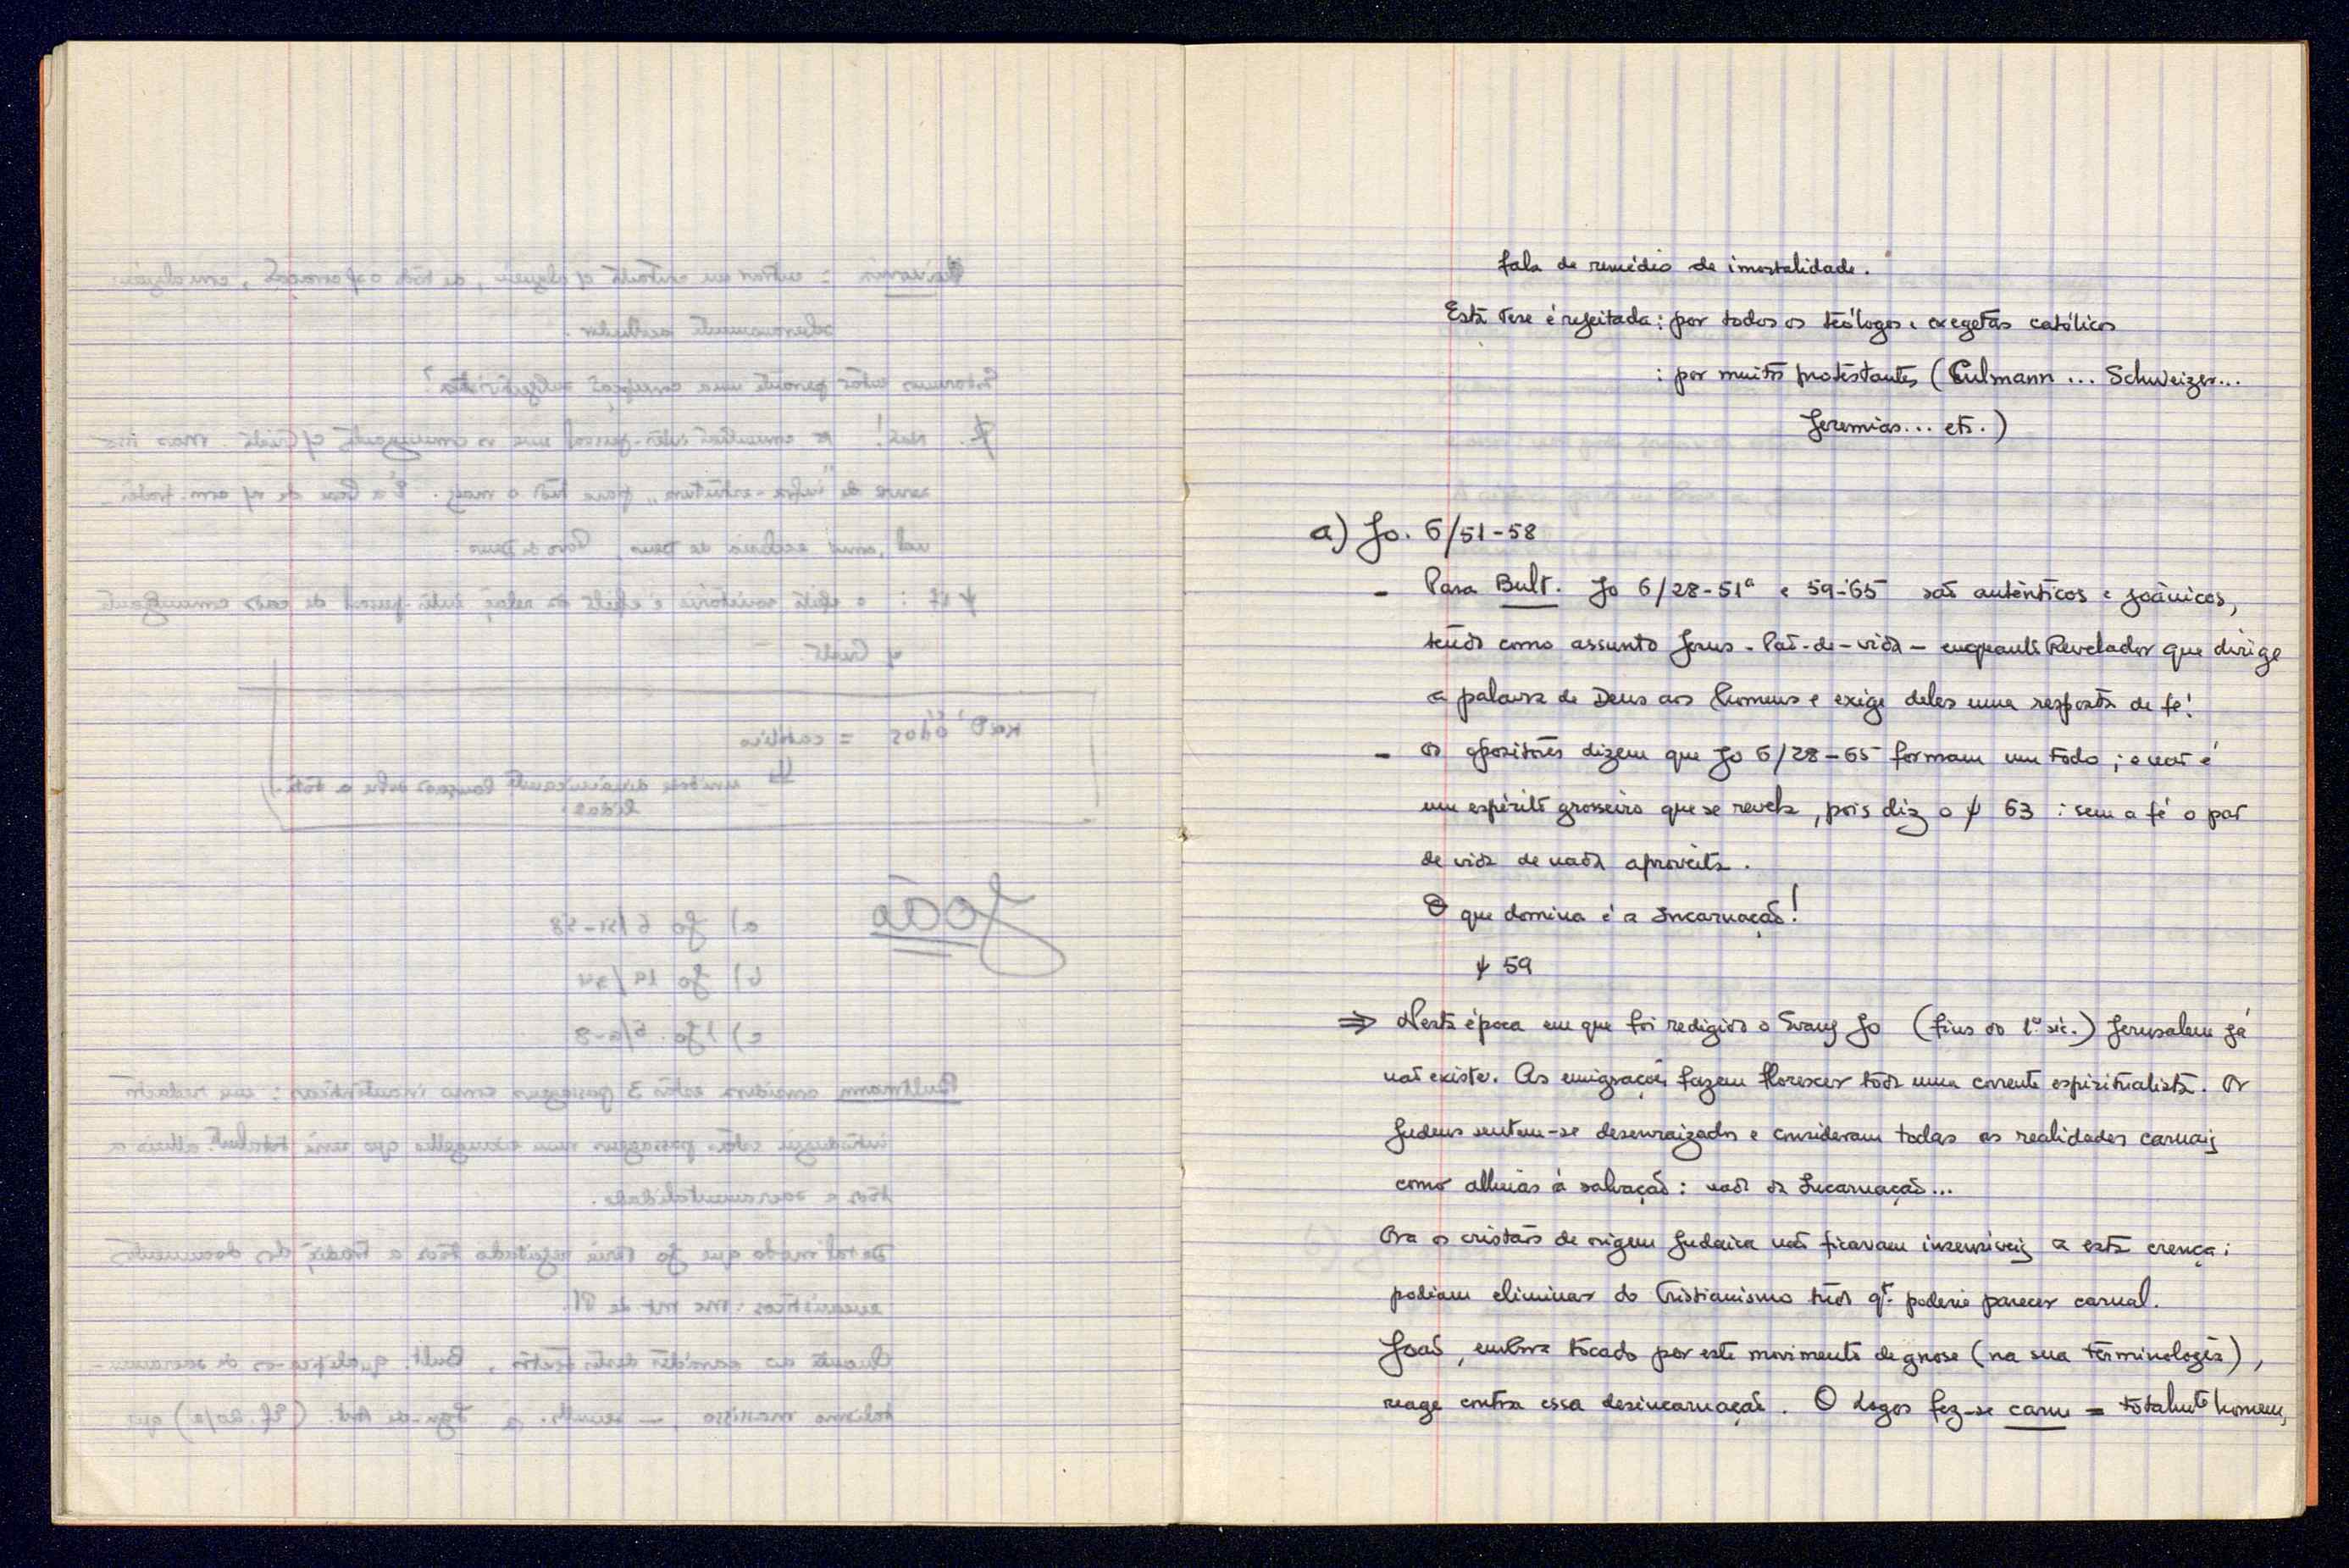 fala de remédio de imortalidade.
Esta tese é rejeitada: por todos os teólogos e exegetas católicos
: por muitos protestantes (Culmann ... Schweizer...
Jeremias... etc.)
a) Jo. 6/51-58
- Para Bult. Jo 6/28-51ª e 59-65 são autênticos e joânicos,
tendo como assunto Jesus - Pão-de-vida - enquanto Revelador que dirige
a palavra de Deus aos homens e exige deles uma resposta de fé!
- Os opositores dizem que Jo 6/28-65 formam um todo; e não é
um espírito grosseiro que se revela, pois diz o ℣ 63 : sem a fé o pão
de vida de nada aproveita.
O que domina é a Incarnação!
℣ 59
⇒ Nesta época em que foi redigido o Evang Jo (fins do 1º séc.) Jerusalem já
não existe. As emigrações fazem florescer toda uma corrente espiritualista. Os
Judeus sentem-se desenraizados e consideram todas as realidades carnais
como alheias à salvação: nada da Incarnação...
Ora os cristãos de origem Judaica não ficavam insensíveis a esta crença:
podiam eliminar do Cristianismo tudo qt. poderia parecer carnal.
João, embora tocado por este movimento de gnose (na sua terminologia),
reage contra essa desincarnação. O Logos fez-se carne = totalmte homem,